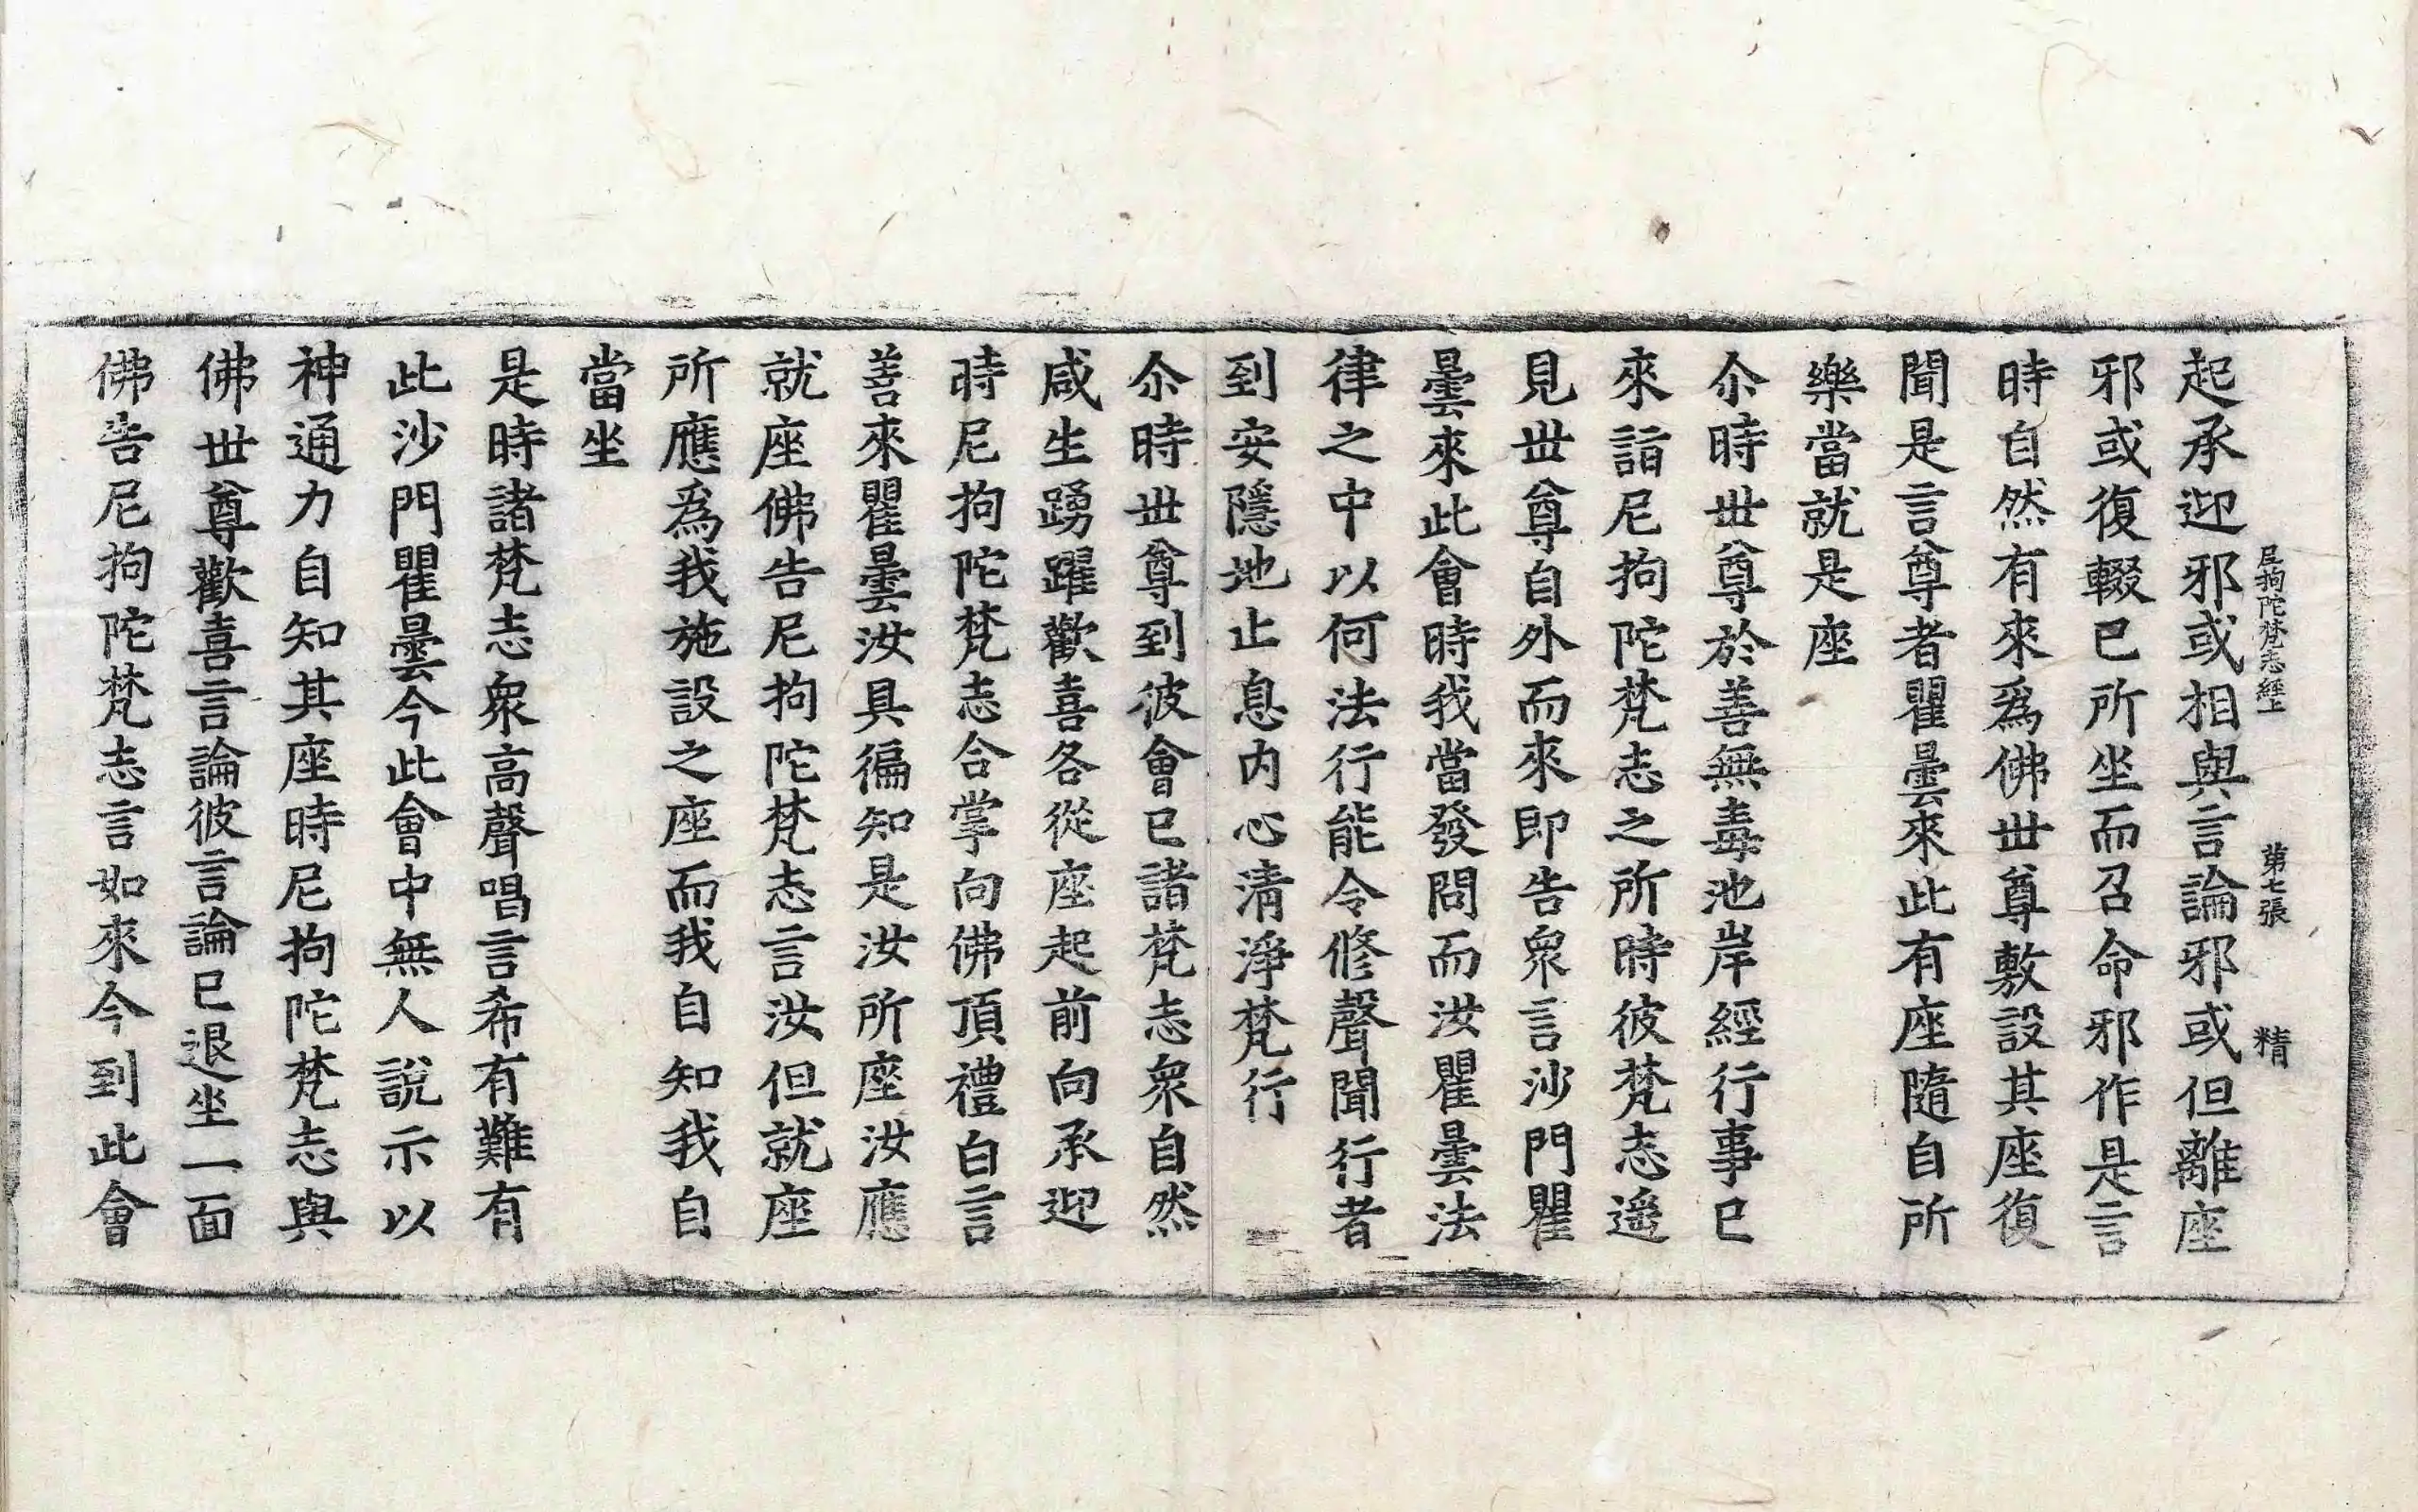 尼拘陀梵志經上　第七張　精
起承迎邪或相與言論邪或但離座
邪或復輟已所坐而召命邪作是言
時自然有來爲佛世尊敷設其座復
聞是言尊者瞿曇來此有座隨自所
樂當就是座
尒時世尊於善無毒池岸經行事已
來詣尼拘陀梵志之所時彼梵志遥
見世尊自外而來即告衆言沙門瞿
曇來此會時我當發問而汝瞿曇法
律之中以何法行能令修聲聞行者
到安隱地止息内心清淨梵行
尒時世尊到彼會已諸梵志衆自然
咸生踴躍歡喜各從座起前向承迎
時尼拘陀梵志合掌向佛頂禮白言
善來瞿曇汝具徧知是汝所座汝應
就座佛告尼拘陀梵志言汝但就座
所應爲我施設之座而我自知我自
當坐
是時諸梵志衆高聲唱言希有難有
此沙門瞿曇今此會中無人說示以
神通力自知其座時尼拘陀梵志與
佛世尊歡喜言論彼言論已退坐一面
佛告尼拘陀梵志言如來今到此會